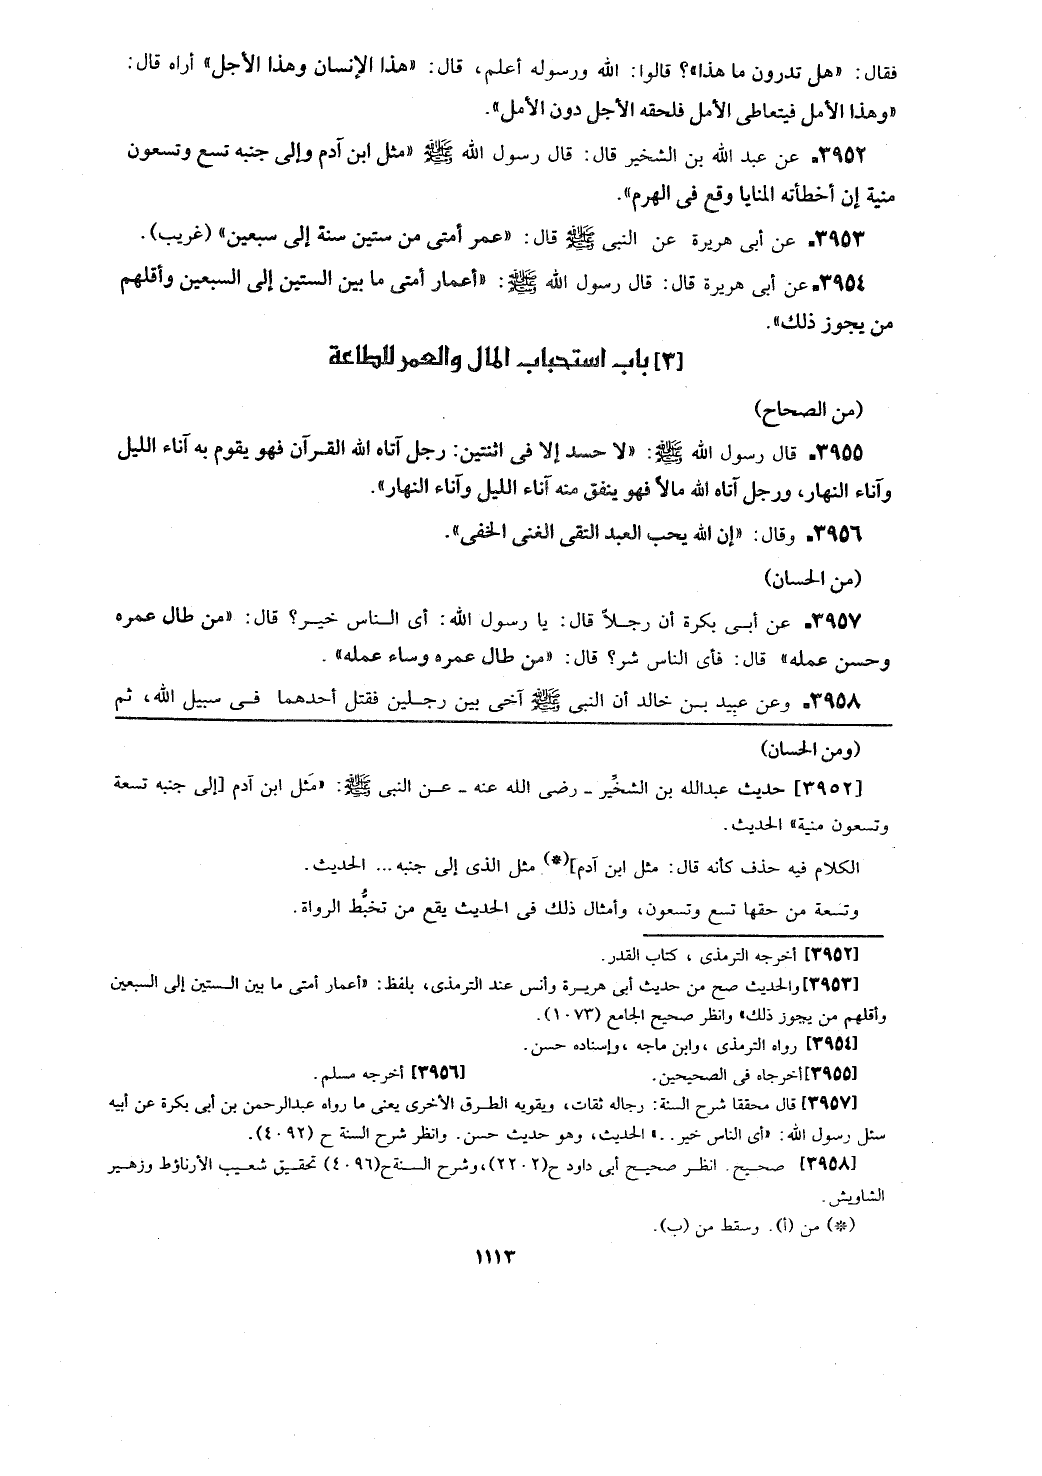 فقال: «هل تدرون ما هذا»؟ قالوا: الله ورسوله أعلم، قال: «هذا الإنسان وهذا الأجل» أراه قال:
«وهذا الأمل فيتعاطى الأمل فلحقه الأجل دون الأمل».
٣٩٥٢ـ عن عبد الله بن الشخير قال: قال رسول الله ﷺ «مثل ابن آدم وإلى جنبه تسع وتسعون
منية إن أخطأته المنايا وقع فى الهرم».
٣٩٥٣ـ عن أبى هريرة عن النبى ﷺ قال: «عمر أمتى من ستين سنة إلى سبعين» (غريب).
٣٩٥٤ـ عن أبى هريرة قال: قال رسول الله ﷺ: «أعمار أمتى ما بين الستين إلى السبعين وأقلهم
من يجوز ذلك».
[٣] باب استحباب المال والعمر للطاعة
(من الصحاح)
٣٩٥٥ـ قال رسول الله ﷺ: «لا حسد إلا فى اثنتين: رجل آتاه الله القرآن فهو يقوم به آناء الليل
وآناء النهار، ورجل آتاه الله مالاً فهو ينفق منه آناء الليل وآناء النهار».
٣٩٥٦ـ وقال: «إن الله يحب العبد التقى الغنى الخفى».
(من الحسان)
٣٩٥٧ـ عن أبى بكرة أن رجلاً قال: يا رسول الله: أى الناس خير؟ قال: «من طال عمره
وحسن عمله» قال: فأى الناس شر؟ قال: «من طال عمره وساء عمله».
٣٩٥٨ـ وعن عبيد بن خالد أن النبى ﷺ آخى بين رجلين فقتل أحدهما فى سبيل الله، ثم
(ومن الحسان)
[٣٩٥٢] حديث عبدالله بن الشخِّير ـ رضى الله عنه ـ عن النبى ﷺ: «مَثل ابن آدم [إلى جنبه تسعة
وتسعون منية» الحديث.
الكلام فيه حذف كأنه قال: مثل ابن آدم](*) مثل الذى إلى جنبه... الحديث.
وتسعة من حقها تسع وتسعون، وأمثال ذلك فى الحديث يقع من تخبُّط الرواة.
[٣٩٥٢] أخرجه الترمذى ، كتاب القدر.
[٣٩٥٣] والحديث صح من حديث أبى هريرة وأنس عند الترمذى، بلفظ: «أعمار أمتى ما بين الستين إلى السبعين
وأقلهم من يجوز ذلك» وانظر صحيح الجامع (١٠٧٣).
[٣٩٥٤] رواه الترمذى ،وابن ماجه ،وإسناده حسن.
[٣٩٥٥] أخرجاه فى الصحيحين. [٣٩٥٦] أخرجه مسلم.
[٣٩٥٧] قال محققا شرح السنة: رجاله ثقات، ويقويه الطرق الأخرى يعنى ما رواه عبدالرحمن بن أبى بكرة عن أبيه
سئل رسول الله: «أى الناس خير..» الحديث، وهو حديث حسن. وانظر شرح السنة ح (٤٠٩٢).
[٣٩٥٨] صحيح. انظر صحيح أبى داود ح(٢٢٠٢)،وشرح السنةح(٤٠٩٦) تحقيق شعيب الأرناؤط وزهير
الشاويش.
(*) من (أ). وسقط من (ب).
١١١٣